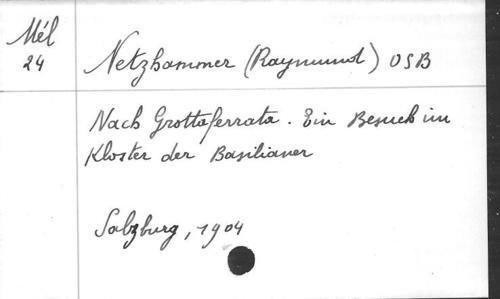 Mél
24
Netzhammer (Raymund) OSB
Nach Grottaferrata. Ein Besuch im
Kloster der Basilianer
Salzburg, 1904